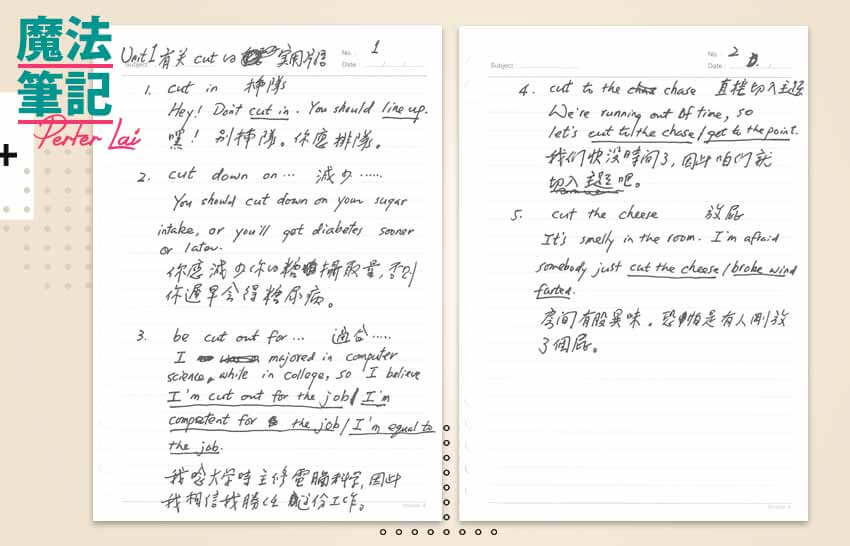 魔法
筆記
Perter Lai
Unit 1 有关 cut の 實用片語
Subject
No. 1
Date
1. cut in 插隊
Hey! Don't cut in. You should line up.
嘿! 別插隊。你應排隊。
2. cut down on … 減少……
You should cut down on your sugar
intake, or you'll get diabetes sooner
or later.
你應減少你の糖攝取量,否則
你遲早会得糖尿病。
3. be cut out for … 適合……
I majored in computer
science, while in college, so I believe
I'm cut out for the job/I'm
competent for the job/I'm equal to
the job.
我唸大学時主修電腦科学,因此
我相信我勝任這份工作。
Subject
No. 2
Date
4. cut to the chase 直接切入主題
We're running out of time, so
let's cut to the chase/get to the point.
我们快没時间了,因此咱们就
切入主題吧。
5. cut the cheese 放屁
It's smelly in the room. I'm afraid
somebody just cut the cheese/broke wind
farted.
房间有股異味。恐怕是有人剛放
了個屁。